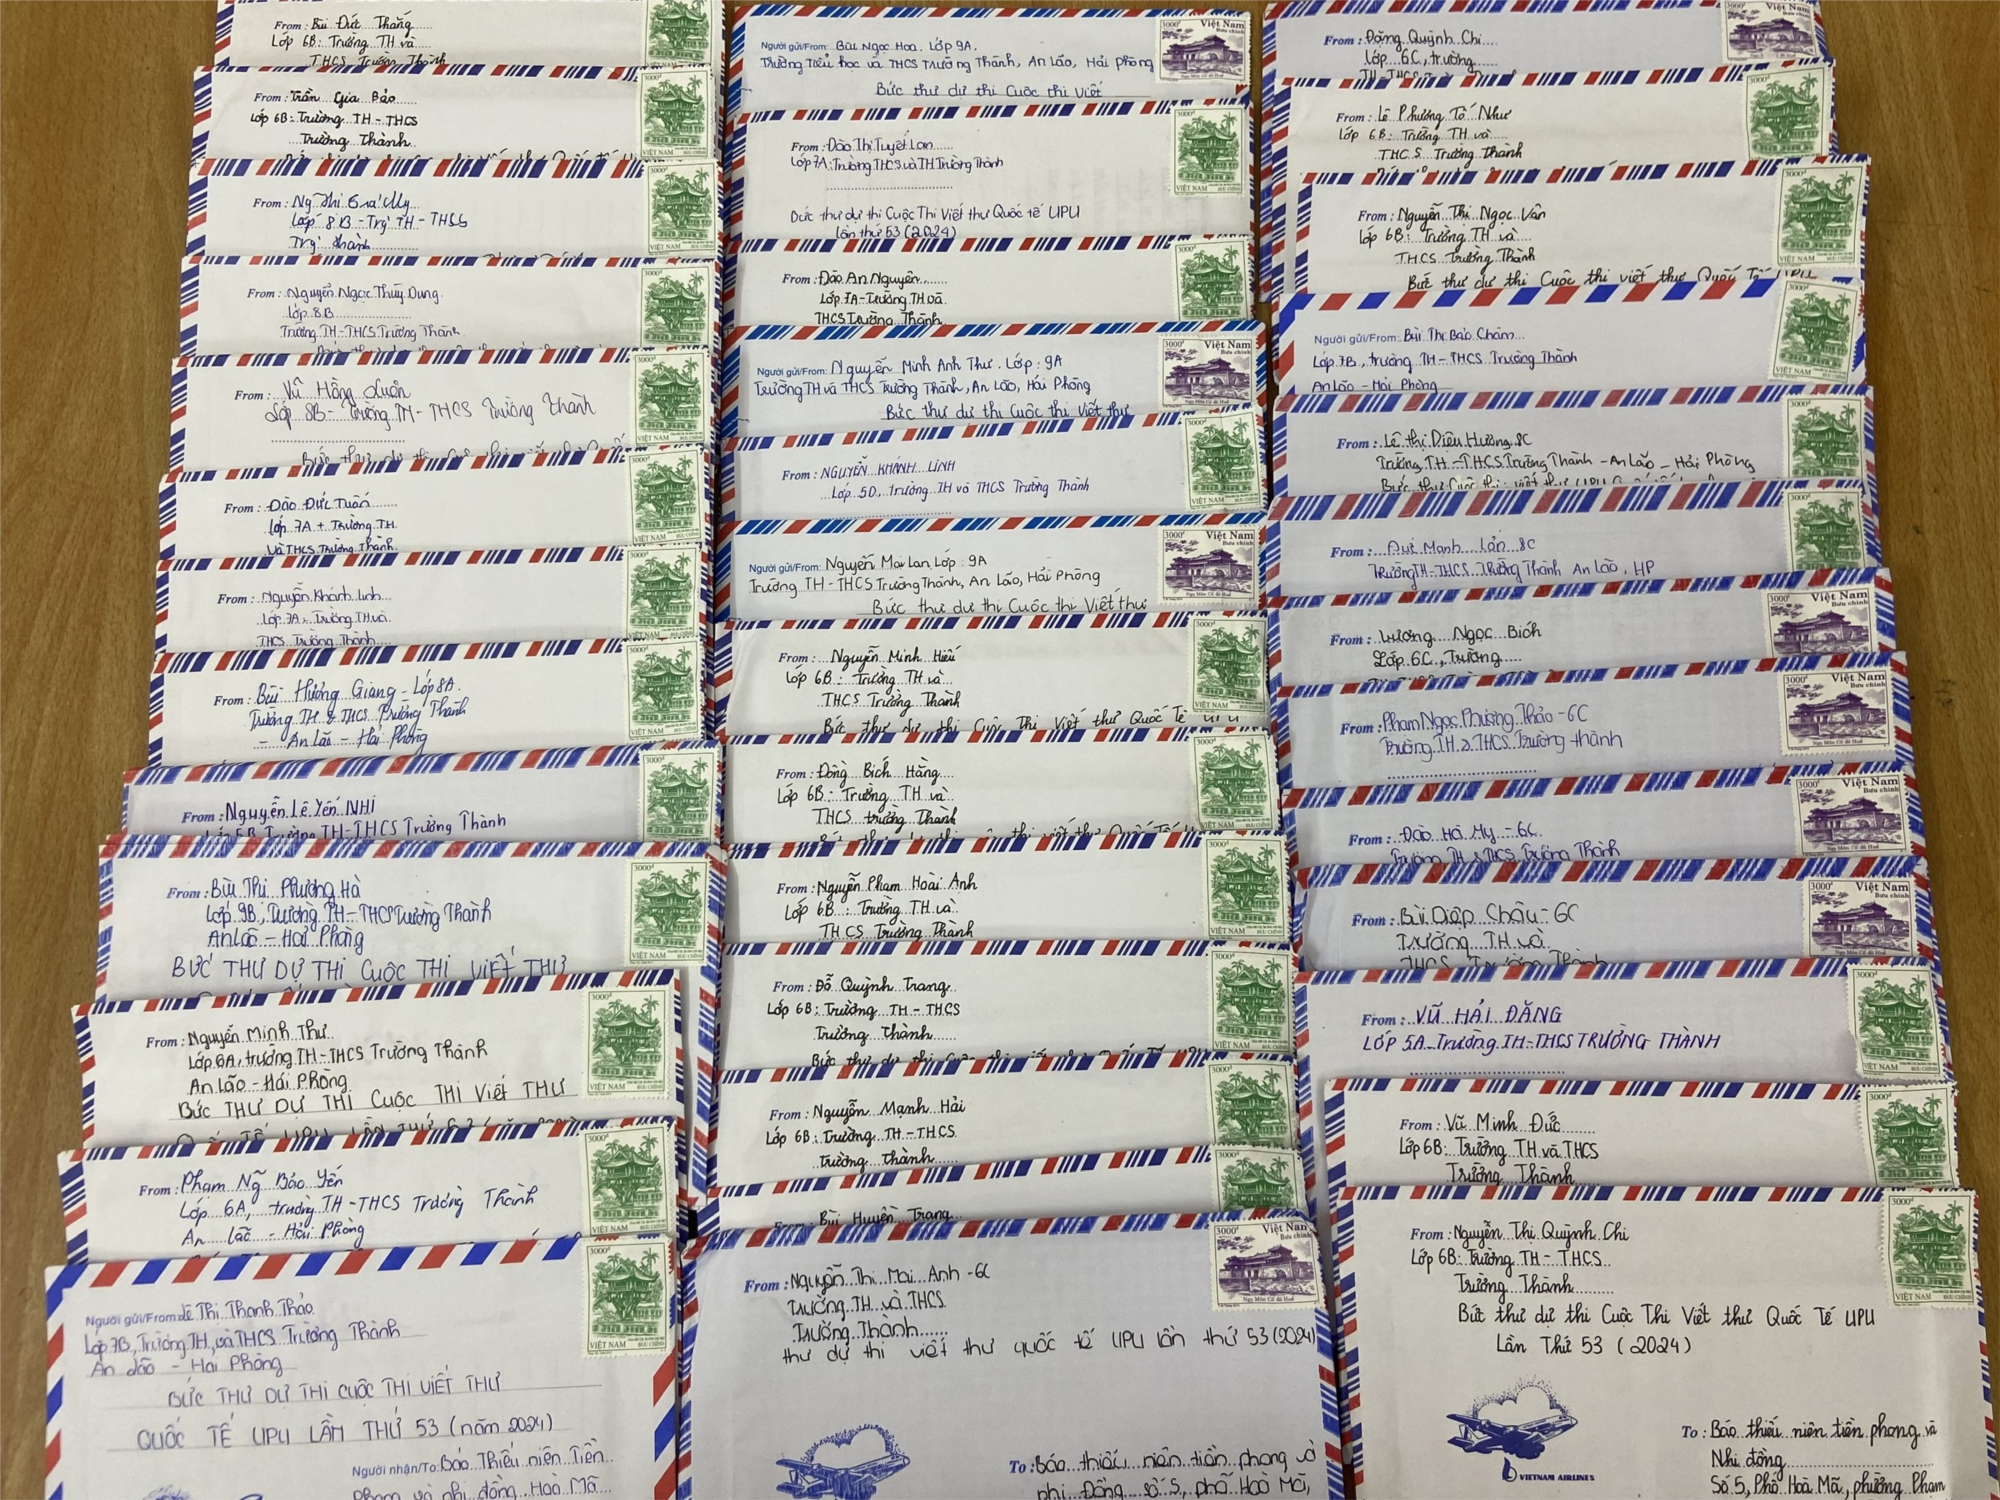 From: Bùi Đức Thắng
Lớp 6B: Trường TH và
THCS Trường Thành
From: Trần Gia Bảo
Lớp 6B: Trường TH - THCS
Trường Thành
3000đ
VIỆT NAM BƯU CHÍNH
From: Ng Thị Trà My
Lớp 8B - Trg TH - THCS
Trg Thành
3000đ
VIỆT NAM
From: Nguyễn Ngọc Thùy Dung
Lớp 8B
Trường TH-THCS Trường Thành
3000đ
From: Vũ Hồng
Lớp 8B - Trường TH - THCS Trường Thành
3000đ
VIỆT NAM BƯU CHÍNH
From: Đào Đức Tuấn
Lớp 7A + Trường TH
Và THCS Trường Thành
3000đ
VIỆT NAM
From: Nguyễn Khánh Linh
Lớp 7A: Trường TH và
THCS Trường Thành
3000đ
VIỆT NAM
From: Bùi Hương Giang - Lớp 8A
Trường TH & THCS Trường Thành
- An Lão - Hải Phòng
3000đ
VIỆT NAM
From: Nguyễn Lê Yến NHI
Trường TH-THCS Trường Thành
3000đ
From: Bùi Thị Phương Hà
Lớp 9B, Trường TH-THCS Trường Thành
An Lão - Hải Phòng
BỨC THƯ DỰ THI CUỘC THI VIẾT THƯ
3000đ
VIỆT NAM BƯU CHÍNH
From: Nguyễn Minh Thư
Lớp 6A, trường TH-THCS Trường Thành
An Lão - Hải Phòng
BỨC THƯ DỰ THI CUỘC THI VIẾT THƯ
3000đ
VIỆT NAM BƯU CHÍNH
From: Phạm Ng Bảo Yến
Lớp 6A, trường TH-THCS Trường Thành
An Lão - Hải Phòng
3000đ
VIỆT NAM BƯU CHÍNH
Người gửi/From: Lê Thị Thanh Thảo
Lớp 7B, Trường TH và THCS Trường Thành
An Lão - Hải Phòng
BỨC THƯ DỰ THI CUỘC THI VIẾT THƯ
QUỐC TẾ UPU LẦN THỨ 53 (năm 2024)
Người nhận/To: Báo Thiếu niên Tiền
Phong và nhi đồng, Hoà Mã
3000đ
VIỆT NAM BƯU CHÍNH
Người gửi/From: Bùi Ngọc Hoa. Lớp 9A.
Trường Tiểu học và THCS Trường Thành, An Lão, Hải Phòng
Bức thư dự thi Cuộc thi Viết
3000đ Việt Nam
Bưu chính
Ngọ Môn Cố đô Huế
From: Đào Thị Tuyết Lan
Lớp 7A: Trường THCS và TH Trường Thành
Bức thư dự thi Cuộc Thi Viết thư Quốc tế UPU
lần thứ 53 (2024)
3000đ
VIỆT NAM
From: Đào An Nguyên
Lớp 7A - Trường TH và
THCS Trường Thành
3000đ
Người gửi/From: Nguyễn Minh Anh Thư. Lớp: 9A
Trường TH và THCS Trường Thành, An Lão, Hải Phòng
Bức thư dự thi Cuộc thi Viết thư
3000đ Việt Nam
Bưu chính
Ngọ Môn Cố đô Huế
From: NGUYỄN KHÁNH LINH
Lớp 5D, Trường TH và THCS Trường Thành
3000đ
VIỆT NAM
Người gửi/From: Nguyễn Mai Lan Lớp: 9A
Trường TH-THCS Trường Thành, An Lão, Hải Phòng
Bức thư dự thi Cuộc thi Viết thư
3000đ Việt Nam
Bưu chính
Ngọ Môn Cố đô Huế
From: Nguyễn Minh Hiếu
Lớp 6B: Trường TH và
THCS Trường Thành
Bức thư dự thi Cuộc Thi Viết thư Quốc Tế UPU
3000đ
VIỆT NAM
From: Đồng Bích Hằng
Lớp 6B: Trường TH và
THCS Trường Thành
3000đ
VIỆT NAM
From: Nguyễn Phạm Hoài Anh
Lớp 6B: Trường TH và
THCS Trường Thành
3000đ
VIỆT NAM
From: Đỗ Quỳnh Trang
Lớp 6B: Trường TH - THCS
Trường Thành
3000đ
VIỆT NAM
From: Nguyễn Mạnh Hải
Lớp 6B: Trường TH - THCS
Trường Thành
3000đ
From: Bùi Huyền Trang
From: Nguyễn Thị Mai Anh - 6C
Trường TH và THCS
Trường Thành
thư dự thi viết thư quốc tế UPU lần thứ 53 (2024)
3000đ Việt Nam
Bưu chính
Ngọ Môn Cố đô Huế
To: Báo thiếu niên tiền phong và
nhi Đồng số 5, phố Hoà Mã,
From: Đặng Quỳnh Chi
Lớp 6C, trường
TH-THCS
3000đ Việt Nam
Bưu chính
From: Lê Phương Tố Như
Lớp 6B: Trường TH và
THCS Trường Thành
3000đ
VIỆT NAM
From: Nguyễn Thị Ngọc Vân
Lớp 6B: Trường TH và
THCS Trường Thành
Bức thư dự thi Cuộc thi viết thư Quốc Tế UPU
3000đ
VIỆT NAM
Người gửi/From: Bùi Thị Bảo Châm
Lớp 7B, trường TH-THCS Trường Thành
An Lão - Hải Phòng
3000đ
VIỆT NAM
From: Lê Thị Diệu Hường 8C
Trường TH-THCS Trường Thành - An Lão - Hải Phòng
3000đ
From: Mạnh Lân 8C
Trường TH-THCS Trường Thành An Lão, HP
3000đ
From: Lương Ngọc Bích
Lớp 6C, Trường
3000đ Việt Nam
Bưu chính
From: Phạm Ngọc Phương Thảo - 6C
Trường TH & THCS Trường Thành
3000đ Việt Nam
Bưu chính
Ngọ Môn Cố đô Huế
From: Đào Hà My - 6C
Trường TH & THCS Trường Thành
3000đ Việt Nam
Bưu chính
From: Bùi Diệp Châu - 6C
Trường TH và
THCS Trường Thành
3000đ Việt Nam
Bưu chính
Ngọ Môn Cố đô Huế
From: VŨ HẢI ĐĂNG
LỚP 5A - Trường TH-THCS TRƯỜNG THÀNH
3000đ
VIỆT NAM
From: Vũ Minh Đức
Lớp 6B: Trường TH và THCS
Trường Thành
3000đ
From: Nguyễn Thị Quỳnh Chi
Lớp 6B: Trường TH - THCS
Trường Thành
Bức thư dự thi Cuộc Thi Viết thư Quốc Tế UPU
Lần Thứ 53 (2024)
3000đ
VIỆT NAM BƯU CHÍNH
VIETNAM AIRLINES
To: Báo thiếu niên tiền phong và
Nhi đồng
Số 5, Phố Hoà Mã, phường Phạm